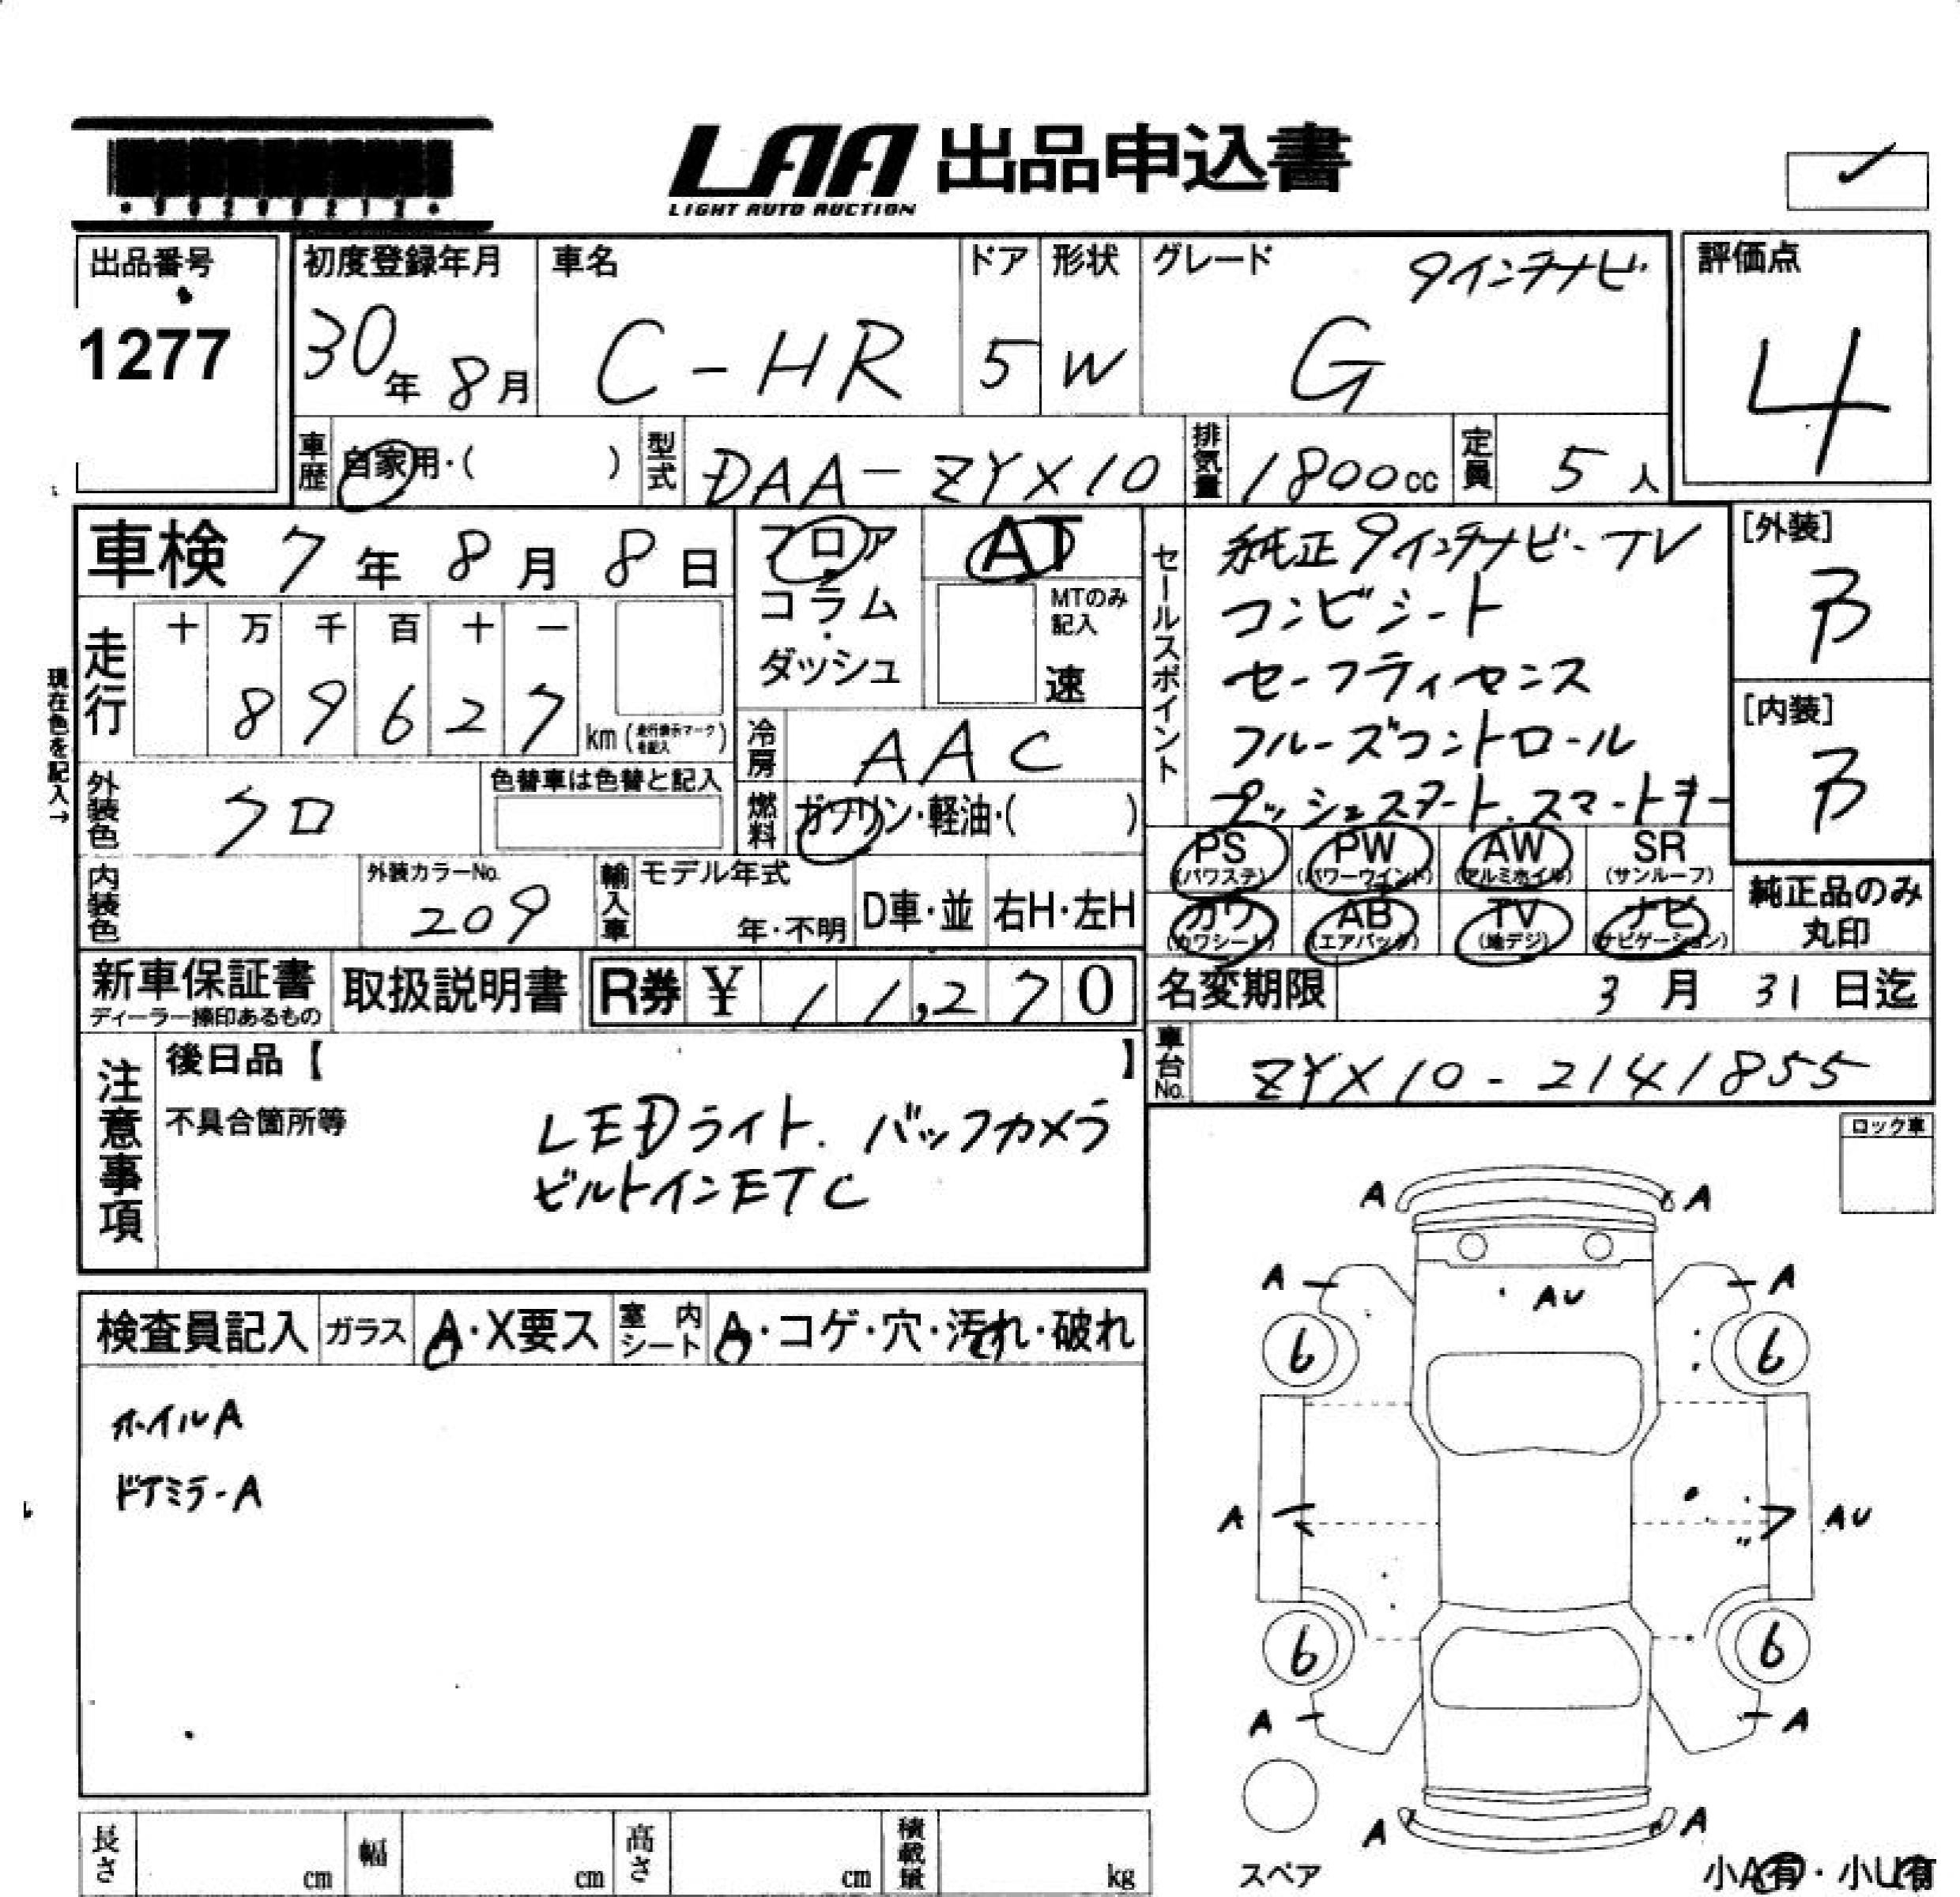 LAA 出品申込書
LIGHT AUTO AUCTION
出品番号
1277
初度登録年月
30年 8月
車名
C-HR
ドア
5
形状
W
グレード 9インチナビ
G
評価点
4
車歴 自家用・( )
型式 DAA-ZYX10
排気量 1800cc
定員 5人
車検 7年 8月 8日
フロア
コラム
・
ダッシュ
AT
MTのみ
記入
速
走行
十 万 千 百 十 一
8 9 6 2 7
km (走行表示マークを記入)
現在色を記入→
冷房 AAC
燃料 ガソリン・軽油・( )
外装色 クロ
色替車は色替と記入
内装色
外装カラーNo.
209
輸入車
モデル年式
年・不明
D車・並
右H・左H
セールスポイント
純正9インチナビ-TV
コンビシート
セーフティセンス
クルーズコントロール
プッシュスタート.スマートキー
[外装]
B
[内装]
B
PS
(パワステ)
PW
(パワーウインド)
AW
(アルミホイル)
SR
(サンルーフ)
カワ
(カワシート)
AB
(エアバック)
TV
(地デジ)
ナビ
(ナビゲーション)
純正品のみ
丸印
新車保証書
ディーラー捺印あるもの
取扱説明書
R券 ¥ 11,270
名変期限 3月 31日迄
車台No. ZYX10-2141855
注意事項
後日品【 】
不具合箇所等
LEDライト. バックカメラ
ビルトインETC
ロック車
検査員記入
ガラス
A・X要ス
室内シート
A・コゲ・穴・汚れ・破れ
ホイルA
ドアミラーA
A A
A A
AU
6 6
A AU
6 6
A A
A A
スペア
小A有・小U有
長さ cm
幅 cm
高さ cm
積載量 kg